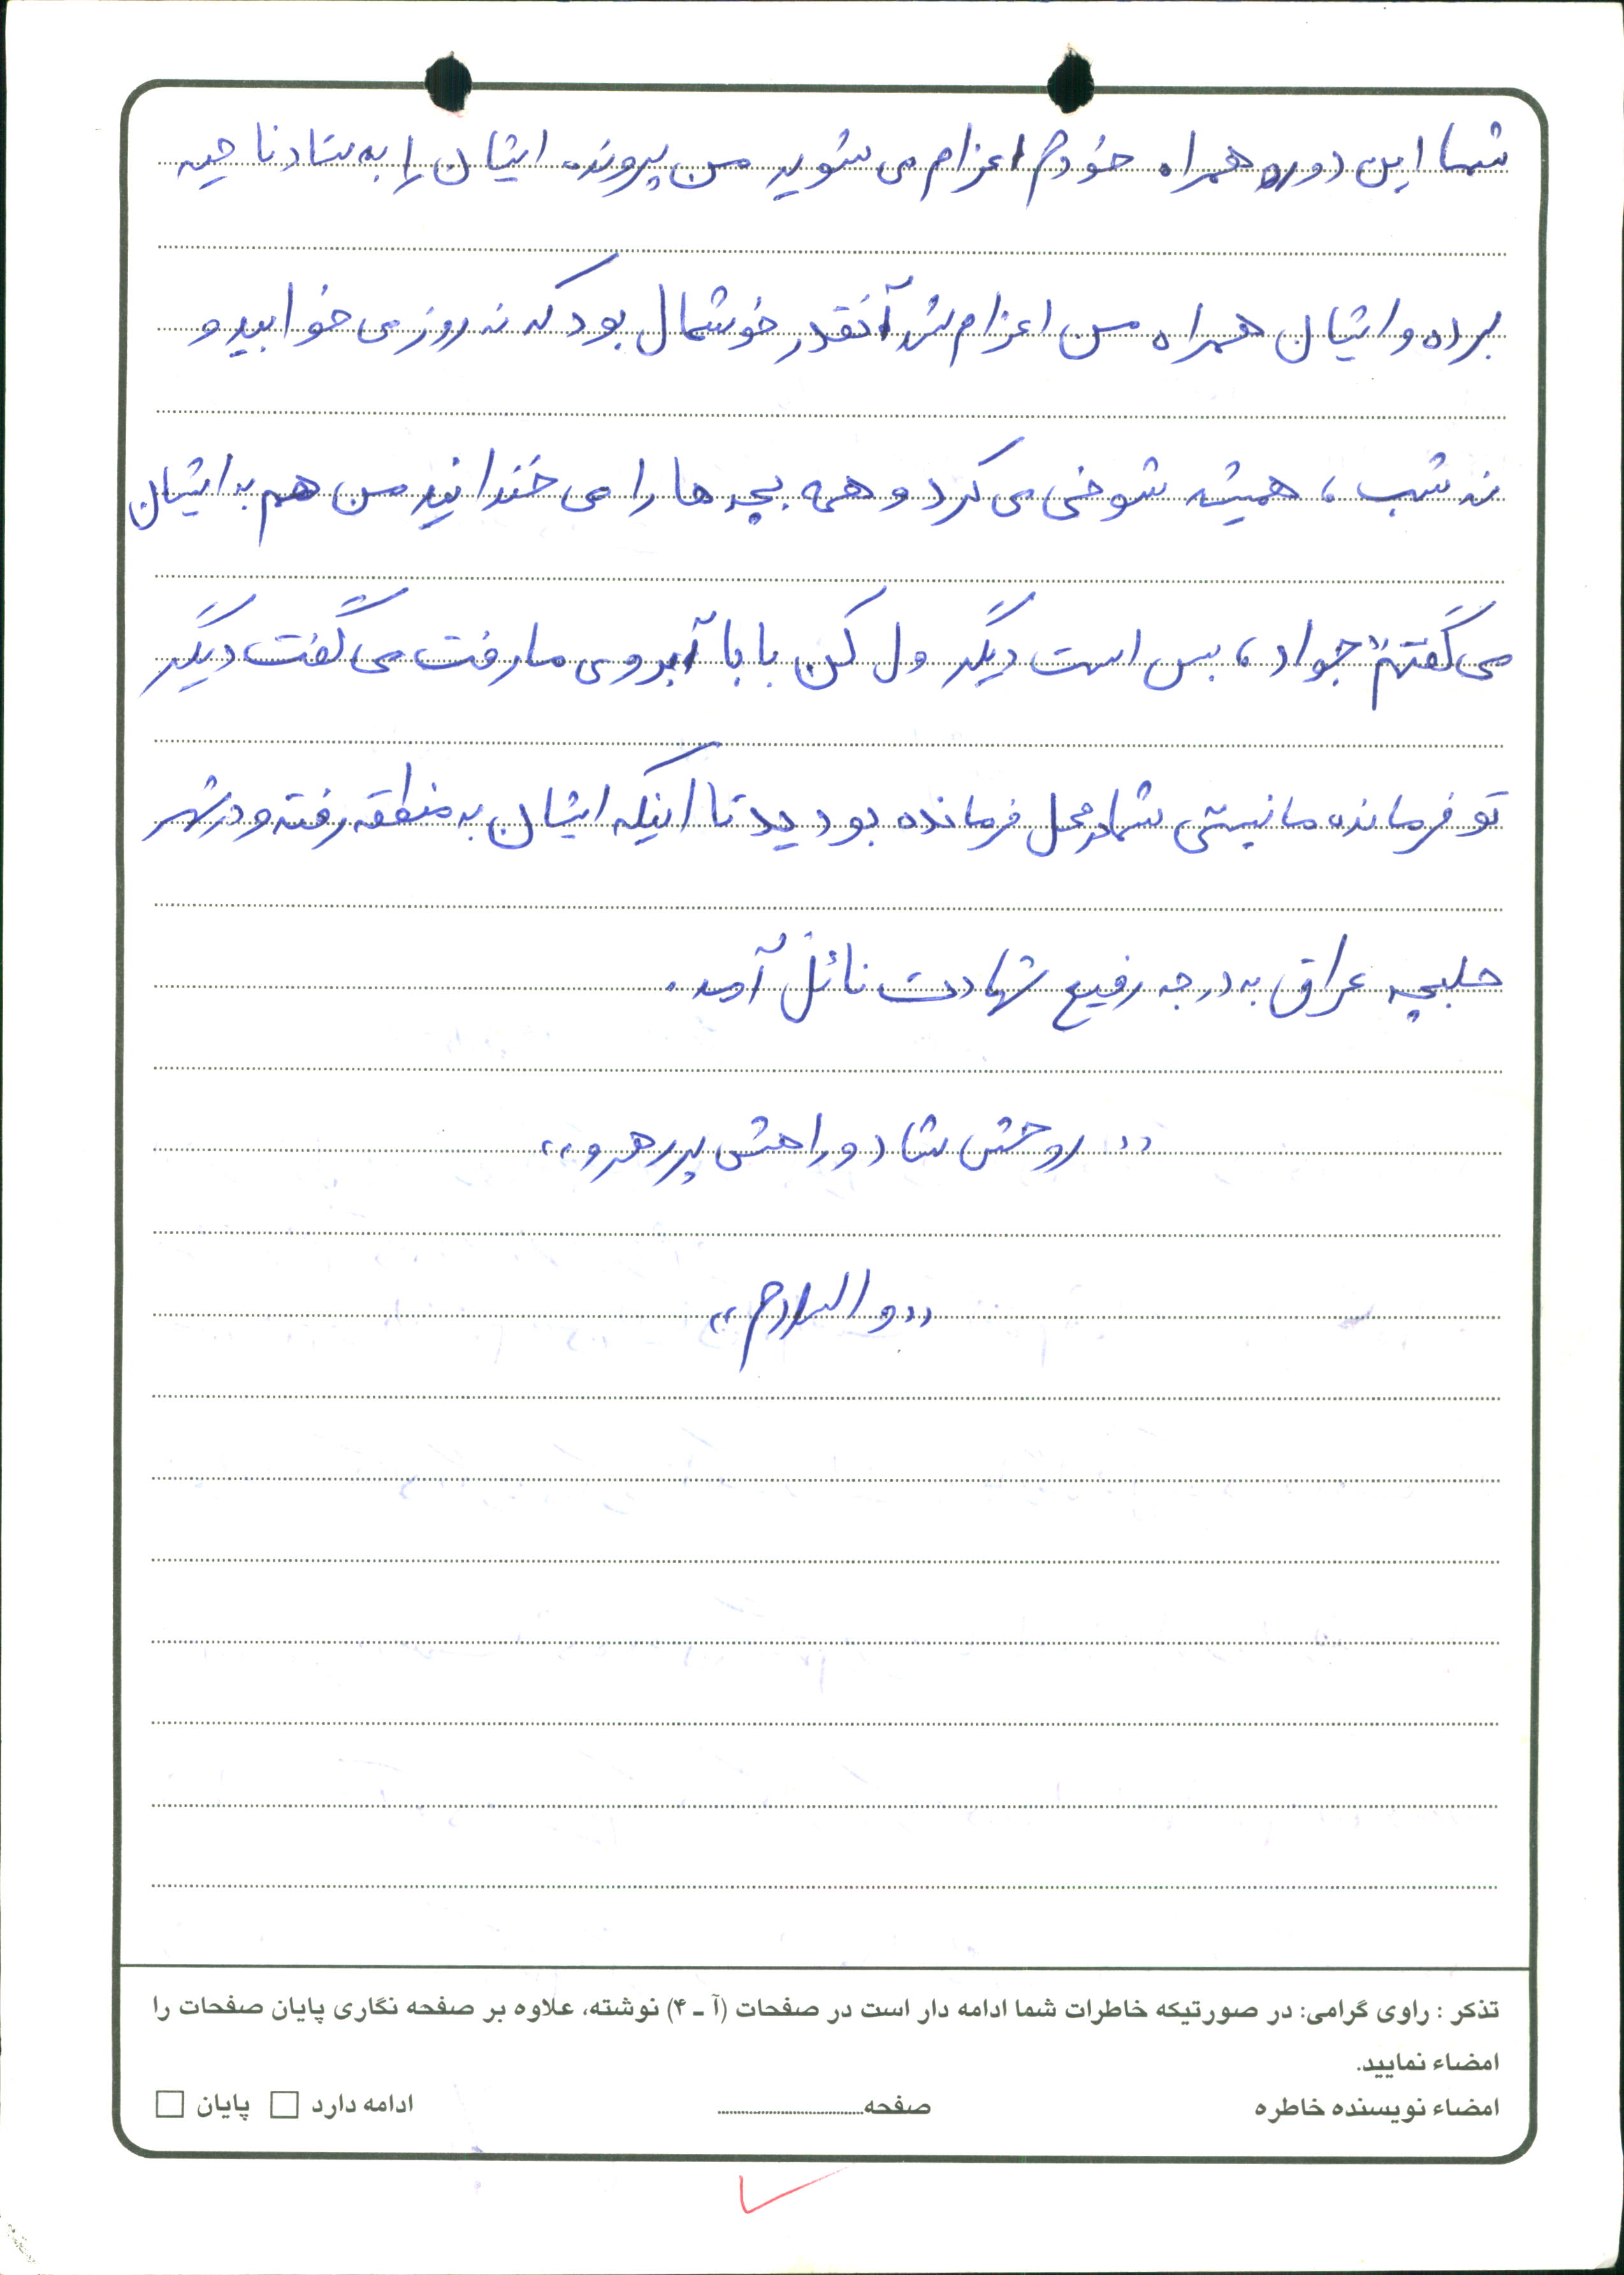 شما این دوره همراه خودم اعزام می شوید من پرونده ایشان را به ستاد ناحیه
برده و ایشان همراه من اعزام شد آنقدر خوشحال بود که نه روز می خوابید و
نه شب ، همیشه شوخی می کرد و همه بچه ها را می خندانید من هم به ایشان
می گفتم جواد ، بس است دیگر ول کن بابا آبروی ما رفت می گفت دیگر
تو فرمانده ما نیستی شما در محل فرمانده بودید تا اینکه ایشان به منطقه رفته و در شهر
حلبچه عراق به درجه رفیع شهادت نائل آمد .
« روحش شاد و راهش پر رهرو »
« والسلام »
تذکر : راوی گرامی: در صورتیکه خاطرات شما ادامه دار است در صفحات (آ ـ ۴) نوشته، علاوه بر صفحه نگاری پایان صفحات را
امضاء نمایید.
امضاء نویسنده خاطره صفحه ادامه دارد □ پایان □